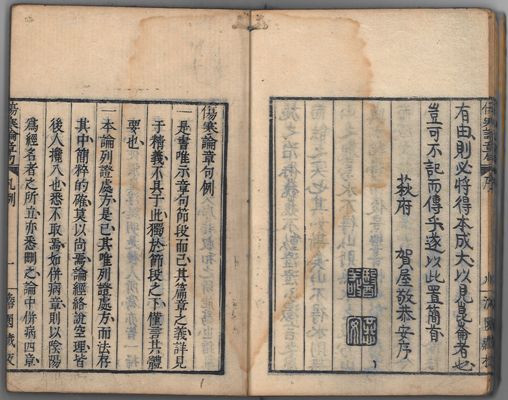 有由則必將得本成大以見是論者也
豈可不記而傳乎遂以此置簡首
萩府　賀屋敬恭安序
傷寒論章句
序
傷寒論章句例
一是書唯示章句節段而已其篇章之義詳見
于精義不具于此獨於節段之下僅言其體
要也
一本論列證處方是已其唯列證處方而法存
其中簡粹的確莫以尚焉論經絡說空理皆
後人攙入也悉不取焉如併病章則以陰陽
爲經名者之所立亦悉刪之論中併病四章
傷寒論章句
凡例
一